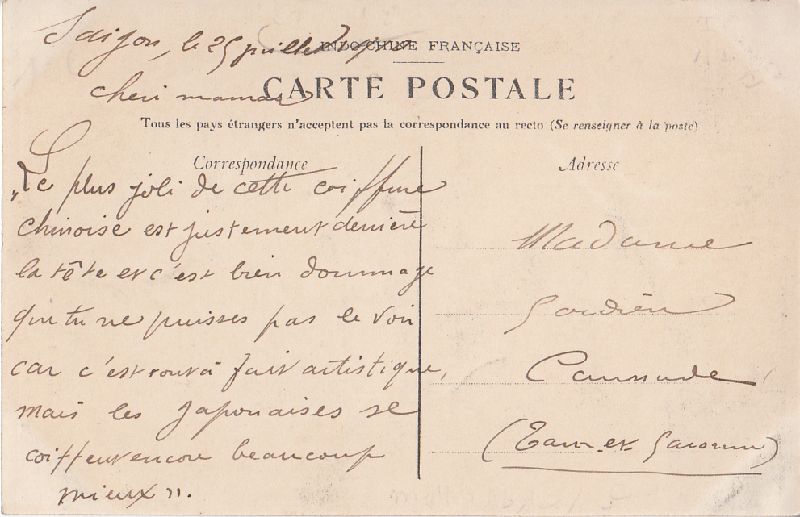 Saigon, le 25 juillet
INDO-CHINE FRANÇAISE
cheri maman
CARTE POSTALE
Tous les pays étrangers n'acceptent pas la correspondance au recto (Se renseigner à la poste)
Correspondance
„Le plus joli de cette coiffure
chinoise est justement derrière
la tête et c'est bien dommage
que tu ne puisses pas le voir
car c'est tout à fait artistique,
mais les Japonaises se
coiffent encore beaucoup
mieux".
Adresse
Madame
Caussade
(Tarn et Garonne)